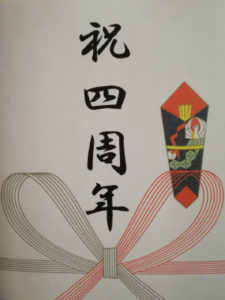 祝四周年